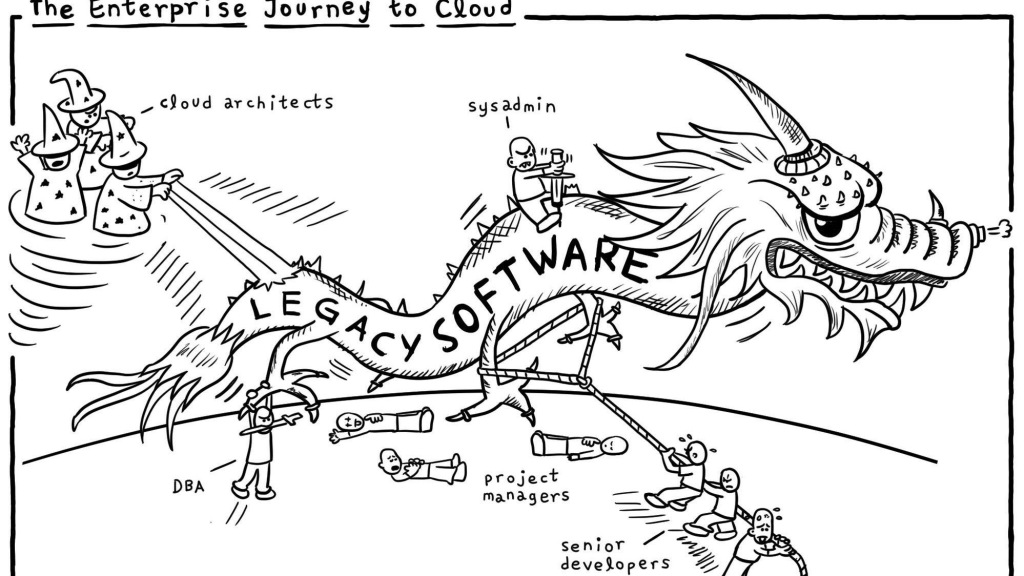 The Enterprise Journey to Cloud
cloud architects
sysadmin
LEGACY SOFTWARE
DBA
project
managers
senior
developers